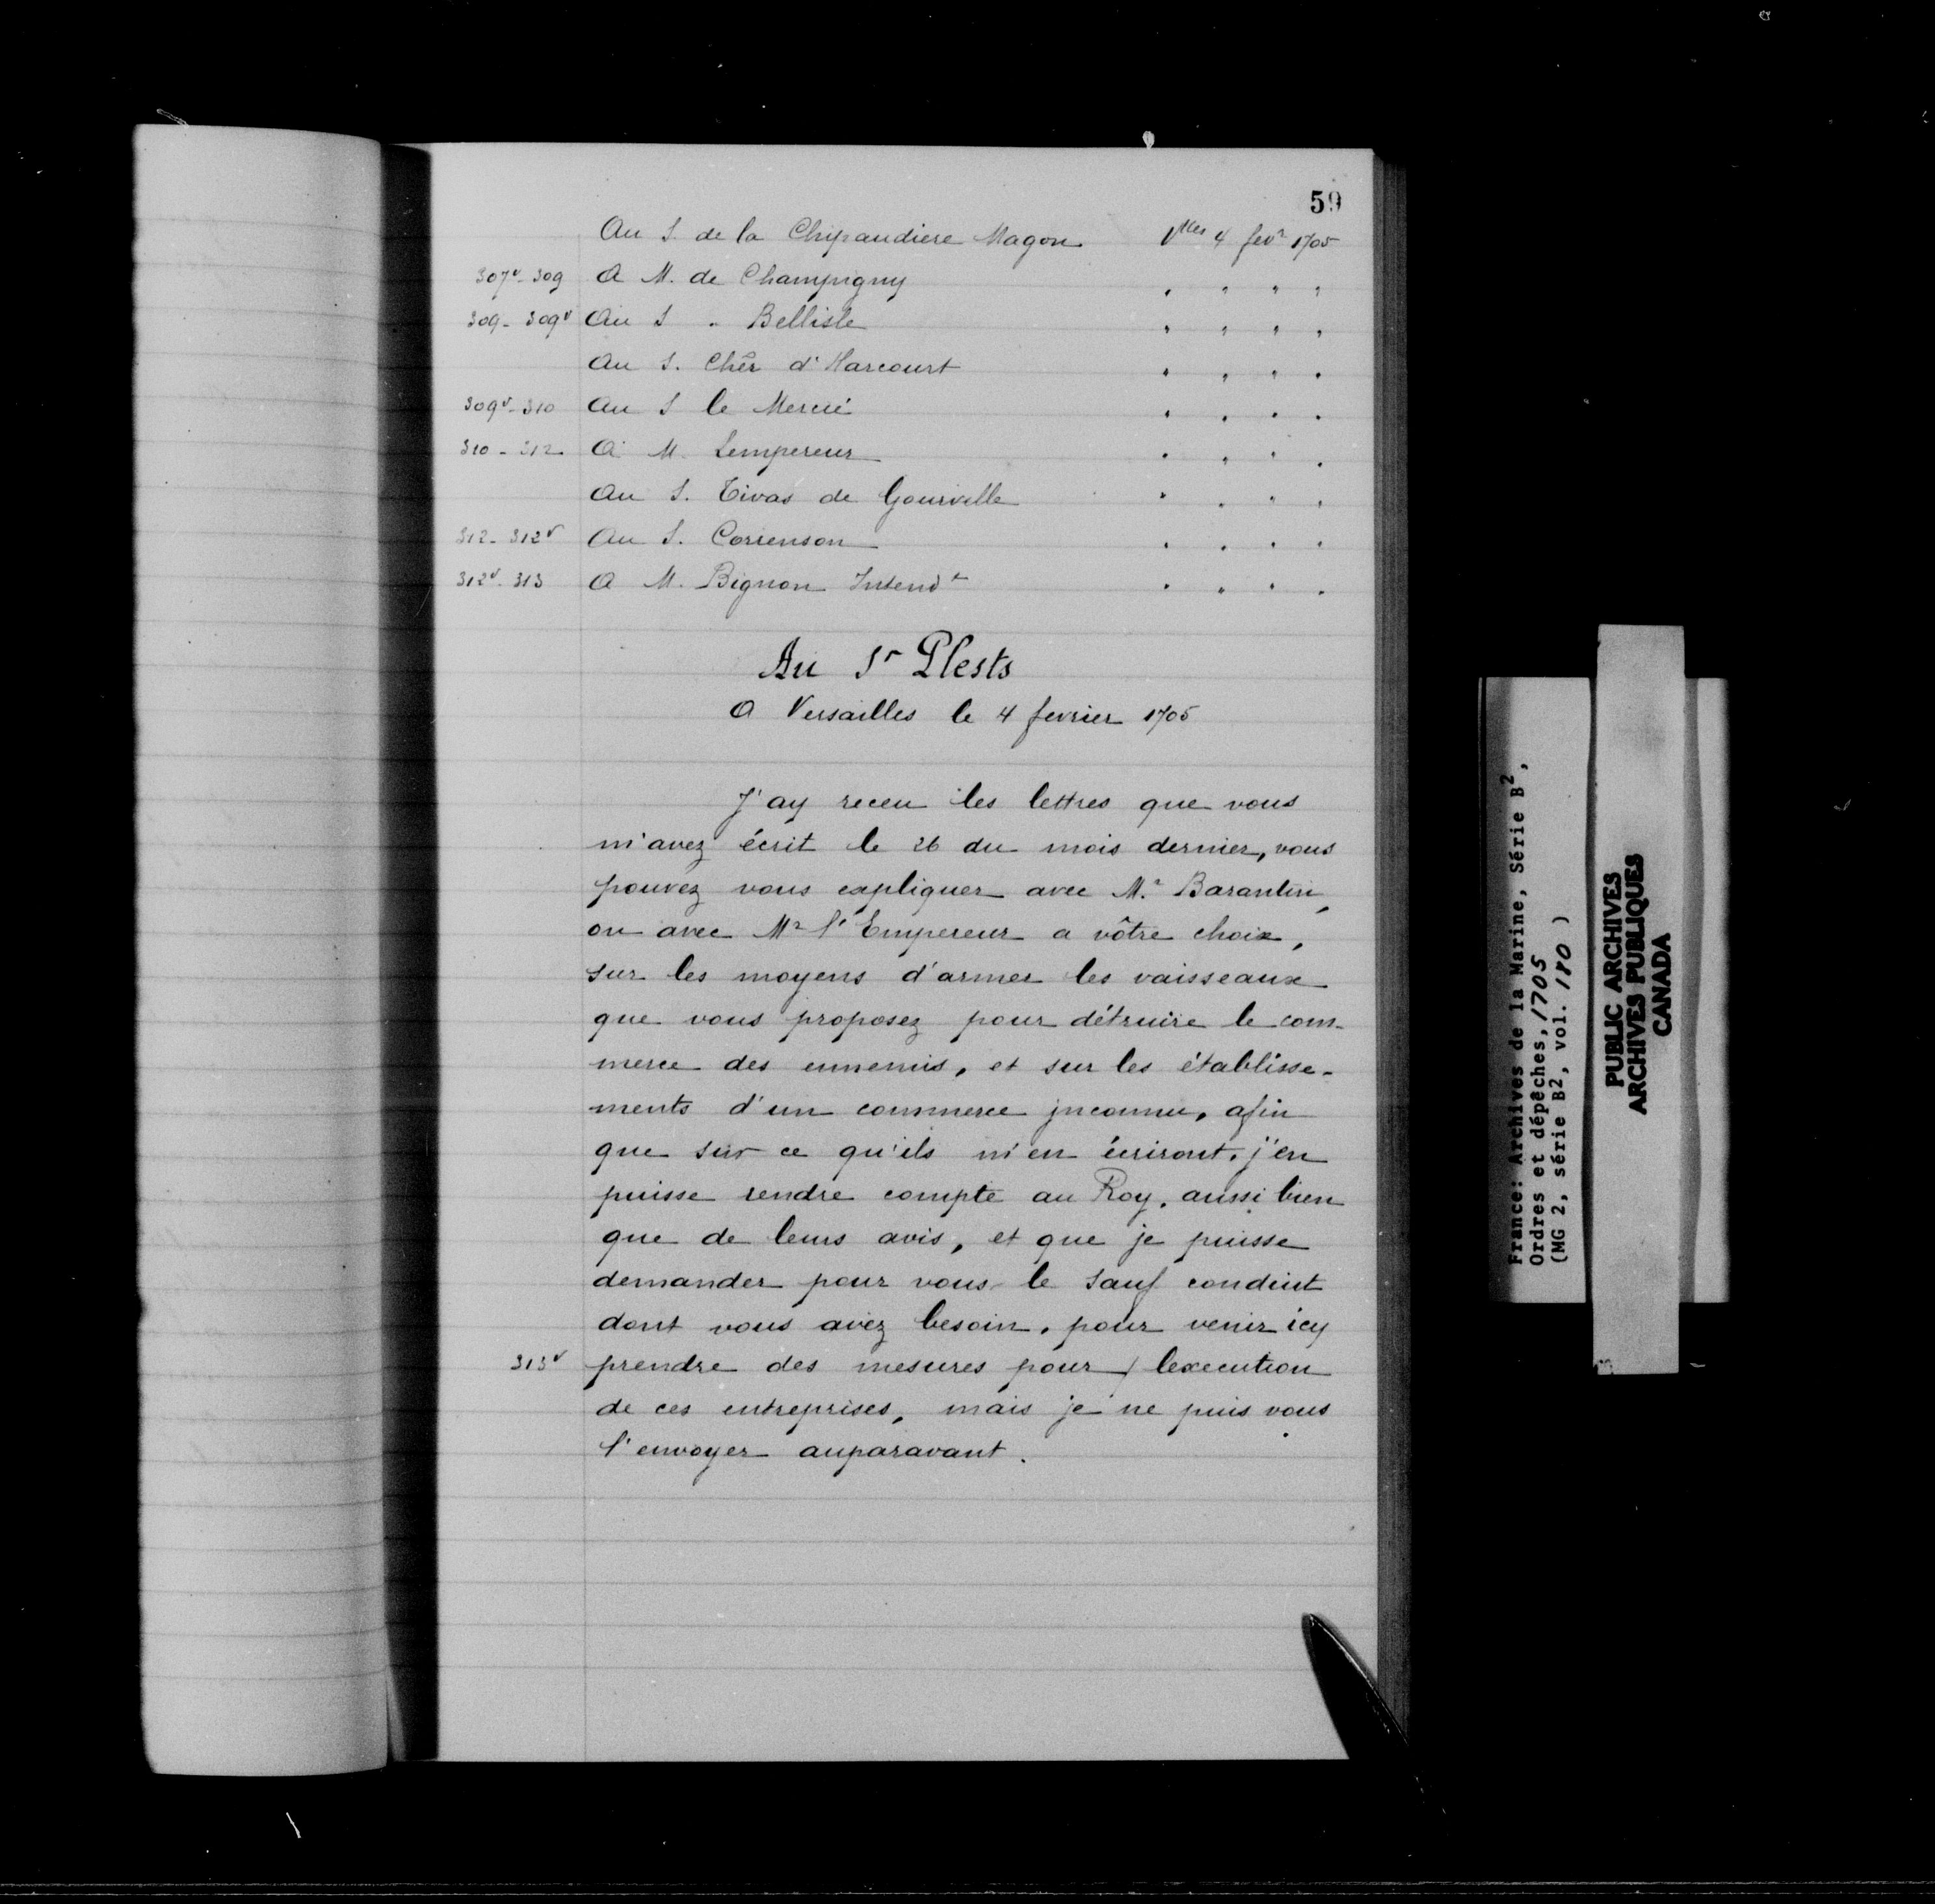 59
Au S. de la Chipaudiere Magon Vlles 4 fevr 1705
307v-309 A M. de Champigny " " " "
309-309v Au S " Bellisle " " " "
Au S. Chêr d'Harcourt " " " "
309v-310 Au S le Mercié " " " "
310-312 A M. Lempereur " " " "
Au S. Tivas de Gourville " " " "
312-312v Au S. Corienson " " " "
312v-313 A M. Bignon Intendt " " " "
Au Sr Plests
A Versailles le 4 fevrier 1705
J'ay receu les lettres que vous
m'avez écrit le 26 du mois dernier, vous
pouvez vous expliquer avec Mr Barantin,
ou avec Mr l'Empereur a vôtre choix,
sur les moyens d'armer les vaisseaux
que vous proposez pour détruire le com-
merce des ennemis, et sur les établisse-
ments d'un commerce jnconnu, afin
que sur ce qu'ils m'en écriront, j'en
puisse rendre compte au Roy, aussi bien
que de leurs avis, et que je puisse
demander pour vous le sauf conduit
dont vous avez besoin, pour venir icy
313v prendre des mesures pour / lexecution
de ces entreprises, mais je ne puis vous
l'envoyer auparavant.
France: Archives de la Marine, Série B2,
Ordres et dépêches, 1705
(MG 2, série B2, vol. 180 )
PUBLIC ARCHIVES
ARCHIVES PUBLIQUES
CANADA